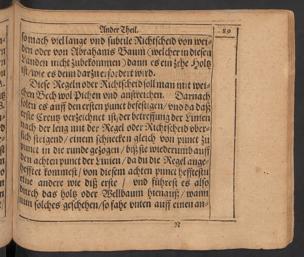 Ander Theil.
89
so mach viel lange und subtile Richtscheid von wei-
den oder von Abrahams Baum (welcher in diesen
Landen nicht zubekommen) dann es ein zehe Holtz
ist / wie es denn darzu erfordert wird.
Diese Regeln oder Richtscheid soll man mit wei-
chen Bech wol Pichen und anstreichen. Darnach
solen es auff den ersten punct befestigen / und da daß
erste Creutz verzeichnet ist / der betreffung der Linien
nach der leng mit der Regel oder Richtscheid uber-
sich steigend / einem schnecken gleich von punct zu
punct in die runde gezogen / biß sie wiederumb auff
den achten punct der Linien / da du die Regel ange-
hefftet kommest / von diesem achten punct heffstestu
eine andere wie diß erste / und führest es also
durch das holtz oder Wellbaum hienauß / wann
nun solches geschehen / so fahe unten auff einen an-
N